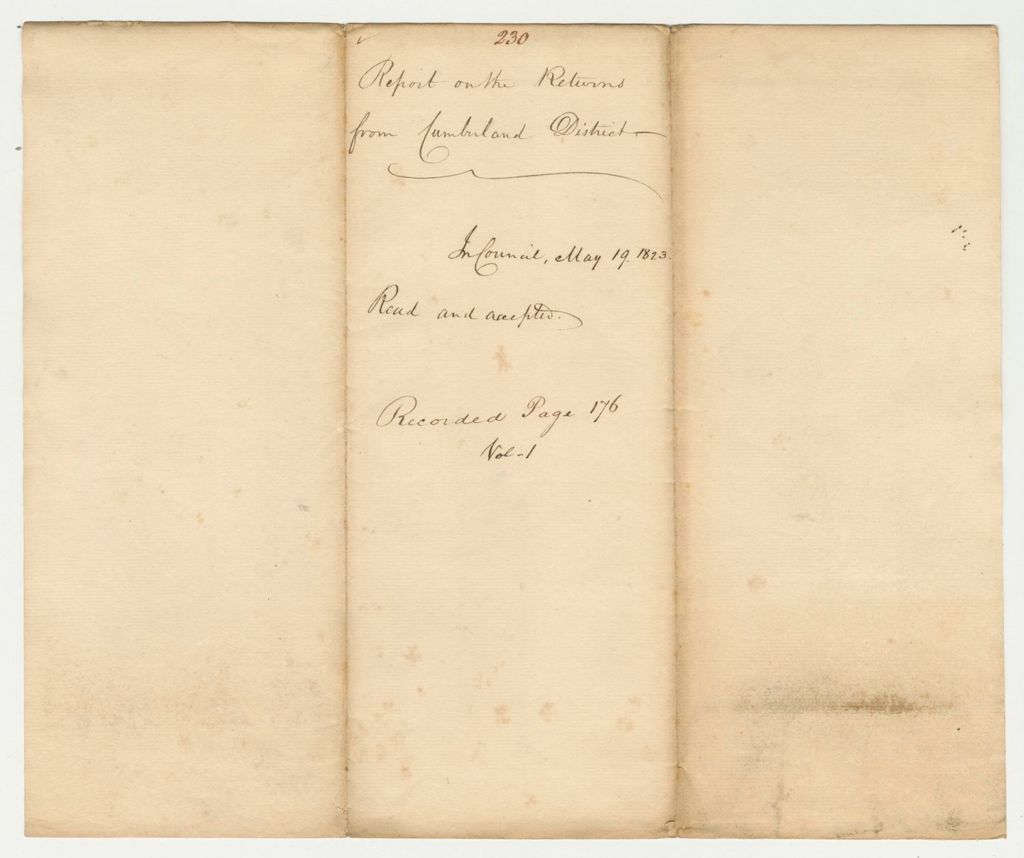 230
Report on the Returns
from Cumberland District
In Council, May 19. 1823.
Read and accepted.
Recorded Page 176
Vol-1